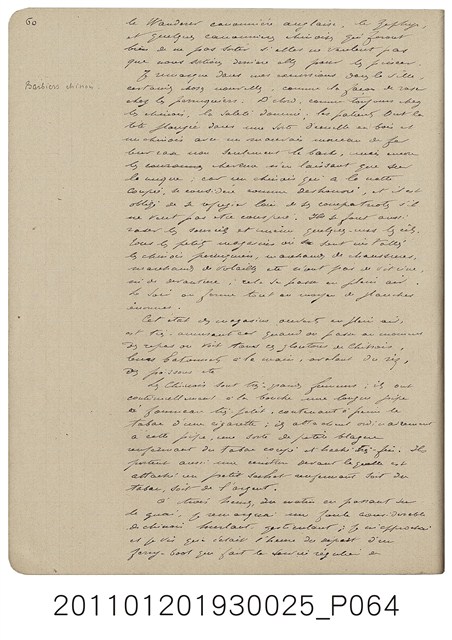 60
le Wanderer canonnière anglaise, le Zephyr,
et quelques canonnières chinoises qui feront
bien de ne pas sortir si elles ne veulent pas
que nous sortions derrière elles pour les pincer.
Je remarque dans nos excursions dans la ville,
certaines choses nouvelles, comme la façon de raser
Barbiers chinois.
chez les perruquiers. D'abord, comme toujours chez
les chinois, la saleté domine; les patients ont la
tête plongée dans une sorte d'écuelle en bois et
un chinois avec un mauvais morceau de fer
leur rase non seulement la barbe, mais encore
les cheveux en ne laissant que
la nuque, car un chinois qui a la natte
coupée, se considère comme déshonoré, et il est
obligé de se réfugier loin de ses compatriotes s'il
ne veut pas être conspué. Ils se font aussi
raser les sourcils et même quelques-uns les cils.
Tous les petits magasins où sont installés
les chinois perruquiers, marchands de chaussures,
marchands de volailles etc n'ont pas de vitrine,
ni de devanture; cela se passe en plein air.
Le soir on ferme tout au moyen de planches
énormes.
Cet état des magasins ouverts en plein air,
est très amusant car quand on passe au moment
des repas on voit tous ces gloutons de Chinois,
leurs batonnets à la main, avalant du riz,
des poissons etc
Les Chinois sont très grands fumeurs; ils ont
continuellement à la bouche une longue pipe
à fourneau très petit, contenant à peine le
tabac d'une cigarette; ils attachent ordinairement
à cette pipe, une sorte de petite blague
renfermant du tabac coupé et haché très fin. Ils
portent aussi une ceinture devant laquelle est
attaché un petit sachet renfermant soit du
tabac, soit de l'argent.
A trois heures du matin en passant sur
le quai, je remarquai une foule considérable
de chinois hurlant, gesticulant; je m'approchai
et je vis que c'était l'heure du départ d'un
ferry-boat qui fait le service régulier de
201101201930025_P064